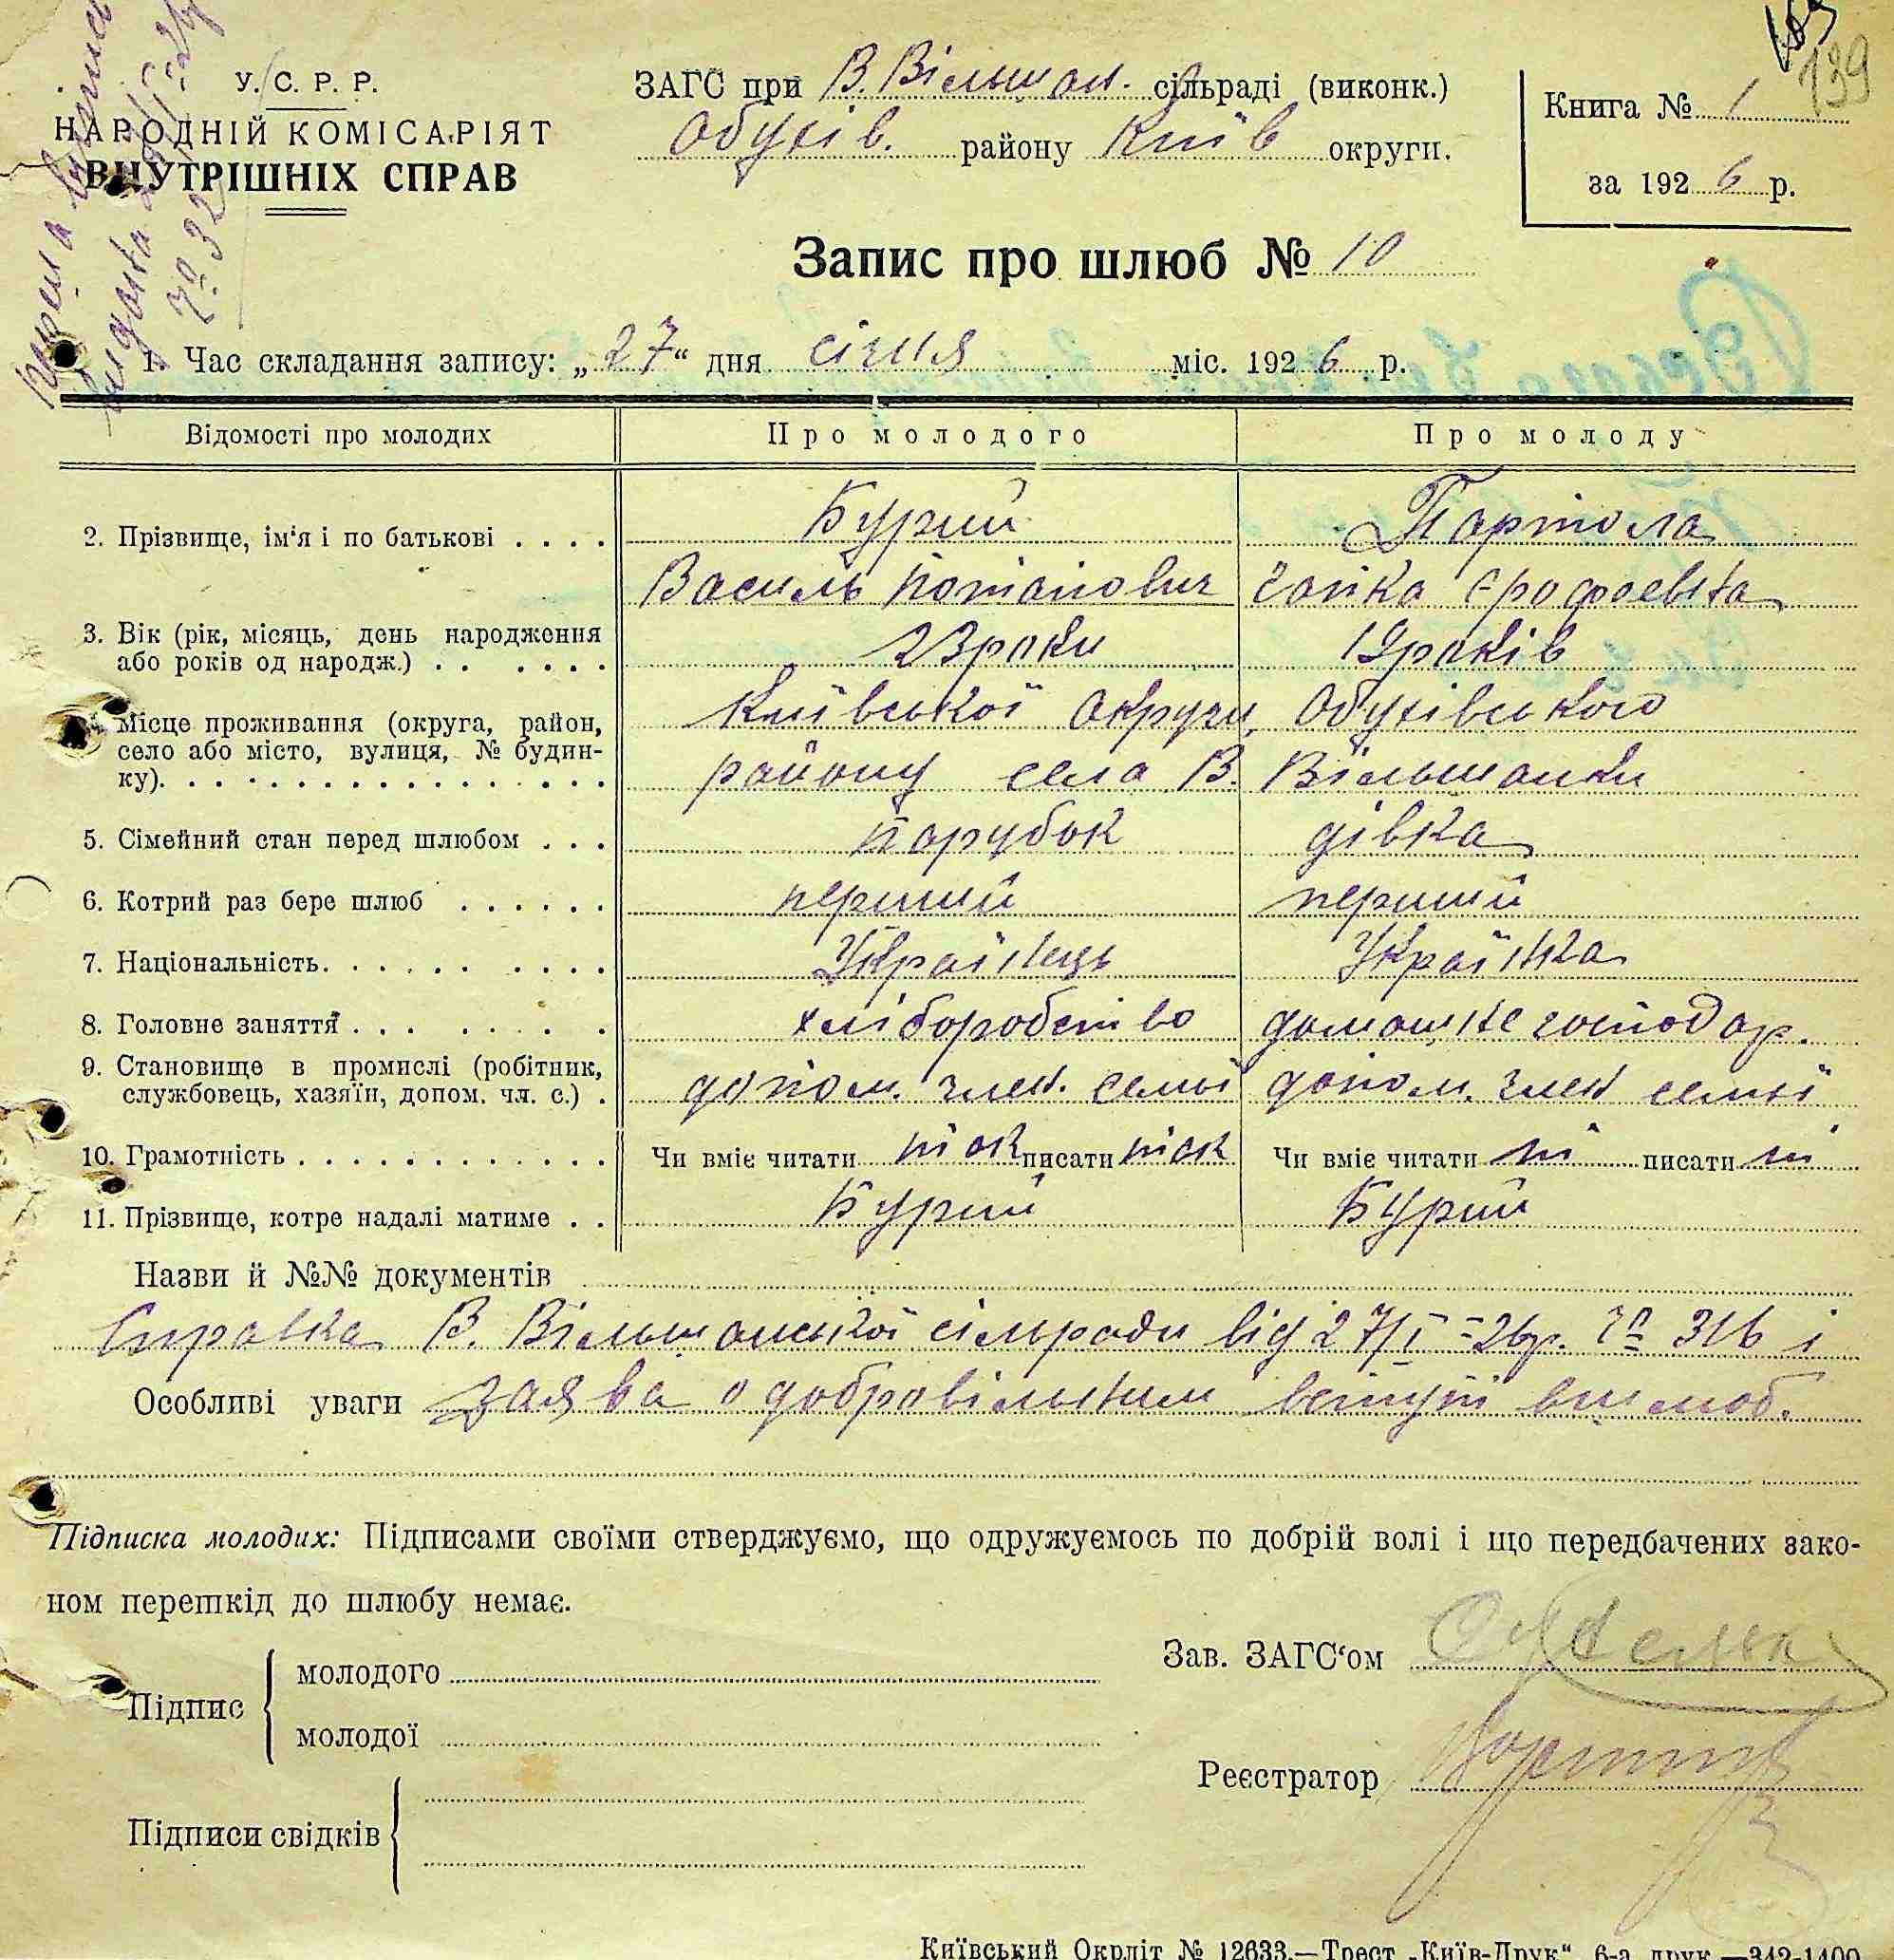 У. С. Р. Р.
НАРОДНІЙ КОМІСАРІЯТ
ВНУТРІШНІХ СПРАВ
ЗАГС при В. Вільшан. сільраді (виконк.)
Обухів. району Київ округи.
139
Книга № 1
за 1926 р.
Запис про шлюб № 10
1. Час складання запису: „27“ дня січня міс. 1926 р.
Відомості про молодих Про молодого Про молоду
2. Прізвище, ім'я і по батькові . . . . Бурий Партола
Василь Потапович Єрофоевна
3. Вік (рік, місяць, день народження 23 роки 19 років
або років од народж.) . . . . . .
4. Місце проживання (округа, район, Київської Округи, Обухівського
село або місто, вулиця, № будин- району села В. Вільшанки
ку). . . . . . . . . . . . . . . . .
5. Сімейний стан перед шлюбом . . . парубок дівка
6. Котрий раз бере шлюб . . . . . . перший перший
7. Національність. . . . . . . . . . Українець Українка
8. Головне заняття . . . . . . . . хліборобство домашне господар.
9. Становище в промислі (робітник,
службовець, хазяїн, допом. чл. с.) . допом. член. семьї допом. член семьї
10. Грамотність . . . . . . . . . . . . Чи вміє читати так писати так Чи вміє читати ні писати ні
11. Прізвище, котре надалі матиме . . Бурий Бурий
Назви й №№ документів
Справка В. Вільшанської сільради від 27/I-26р. № 316 і
Особливі уваги заява о добровільним вступі в шлюб.
Підписка молодих: Підписами своїми стверджуємо, що одружуємось по добрій волі і що передбачених зако-
ном перешкід до шлюбу немає.
Зав. ЗАГС'ом
Підпис
молодого
молодої
Реєстратор
Підписи свідків
Київський Окрліт № 12633.—Трест „Київ-Друк“, 6-а друк.—342-1400